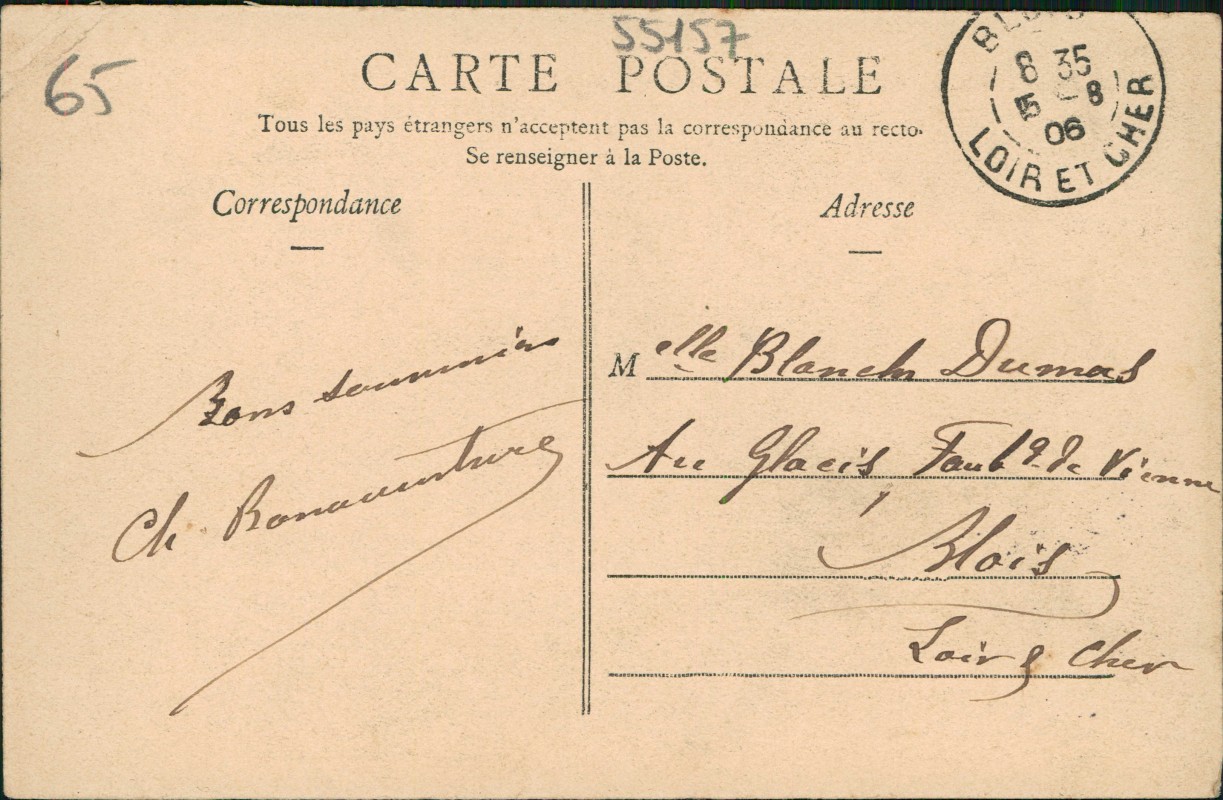 65
55157
CARTE POSTALE
Tous les pays étrangers n'acceptent pas la correspondance au recto.
Se renseigner à la Poste.
BLOIS
8 35
5 - 8
06
LOIR ET CHER
Correspondance
Bons souvenirs
Ch. Bonaventure
Adresse
Melle Blanche Dumas
Au Glacis, Faubg de Vienne
Blois
Loir & Cher